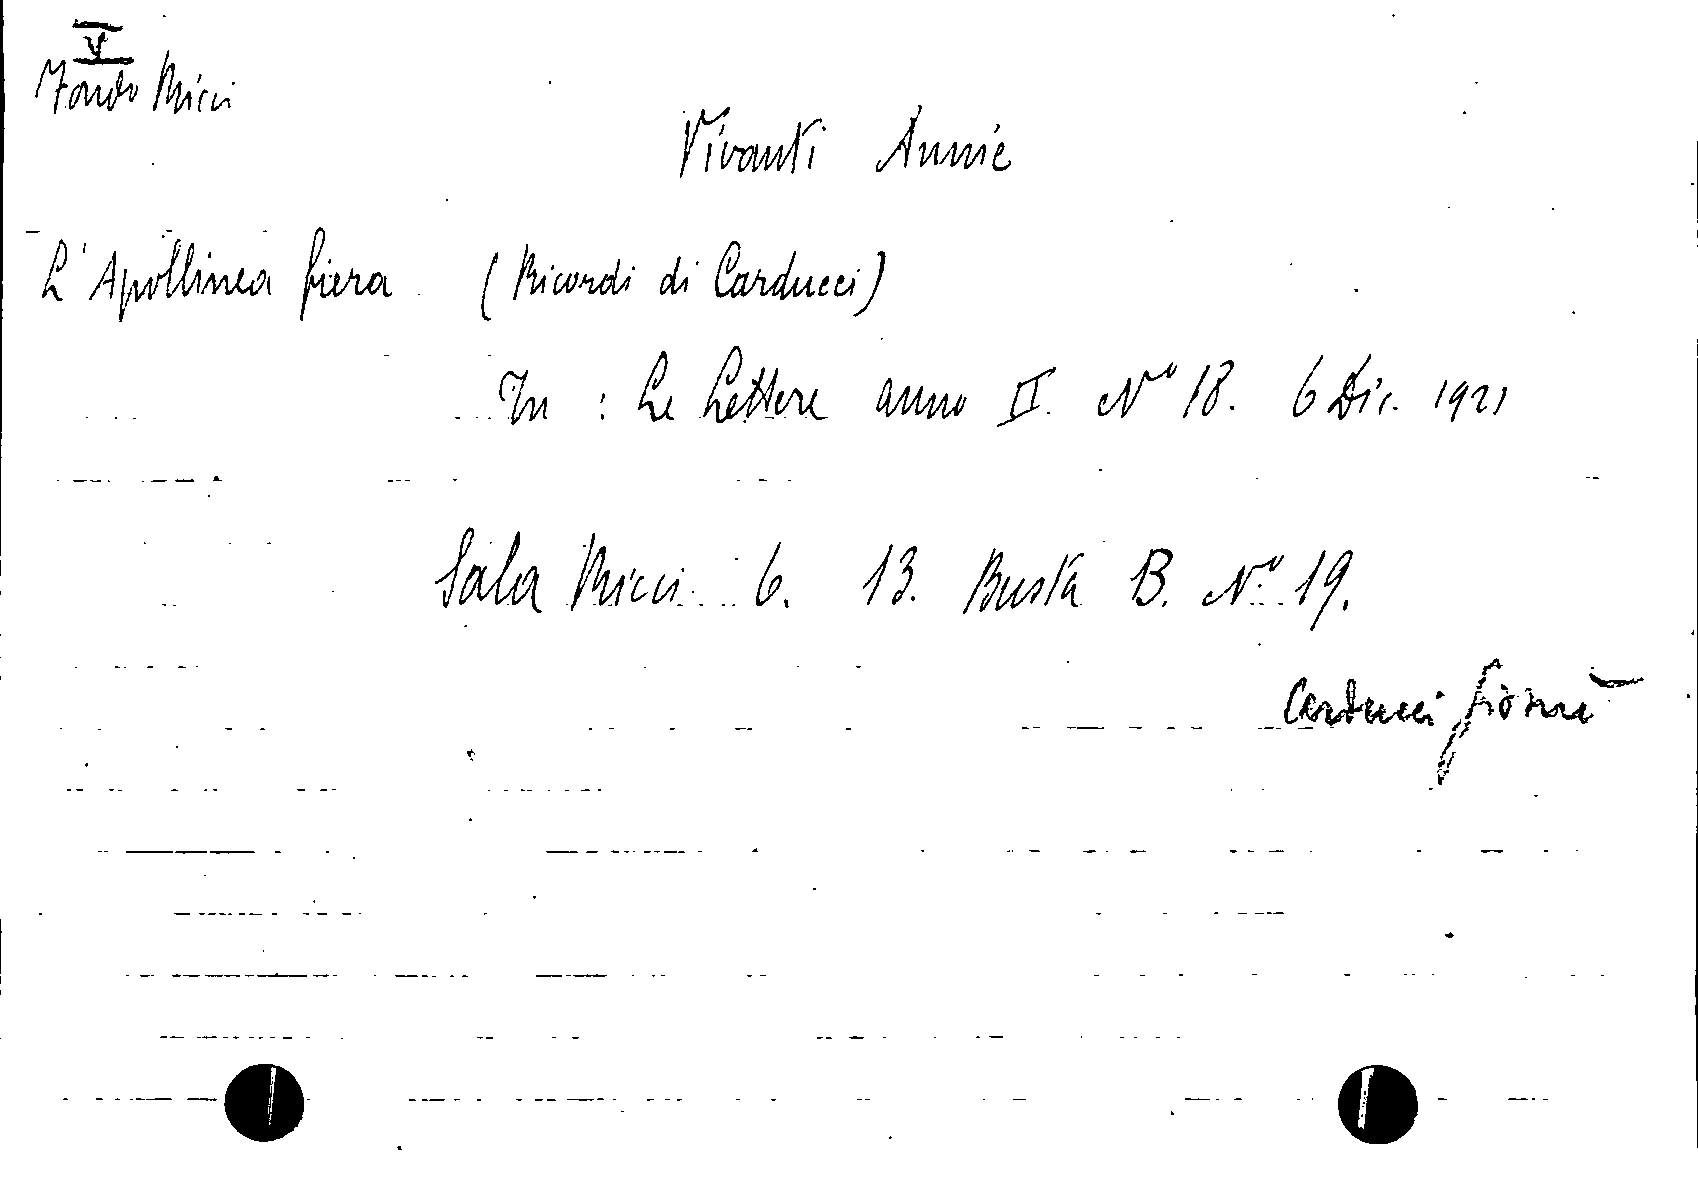 V
Fondo Ricci
Vivanti Annie
L'Apollinea fiera (Ricordi di Carducci)
In : Le Lettere anno II. N° 18. 6 Dic. 1921
Sala Ricci 6. 13. Busta B. N.° 19.
Carducci Giosuè